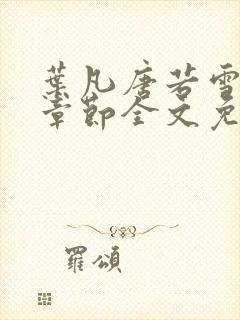 葉凡唐若雪
章節全文免
羅頌